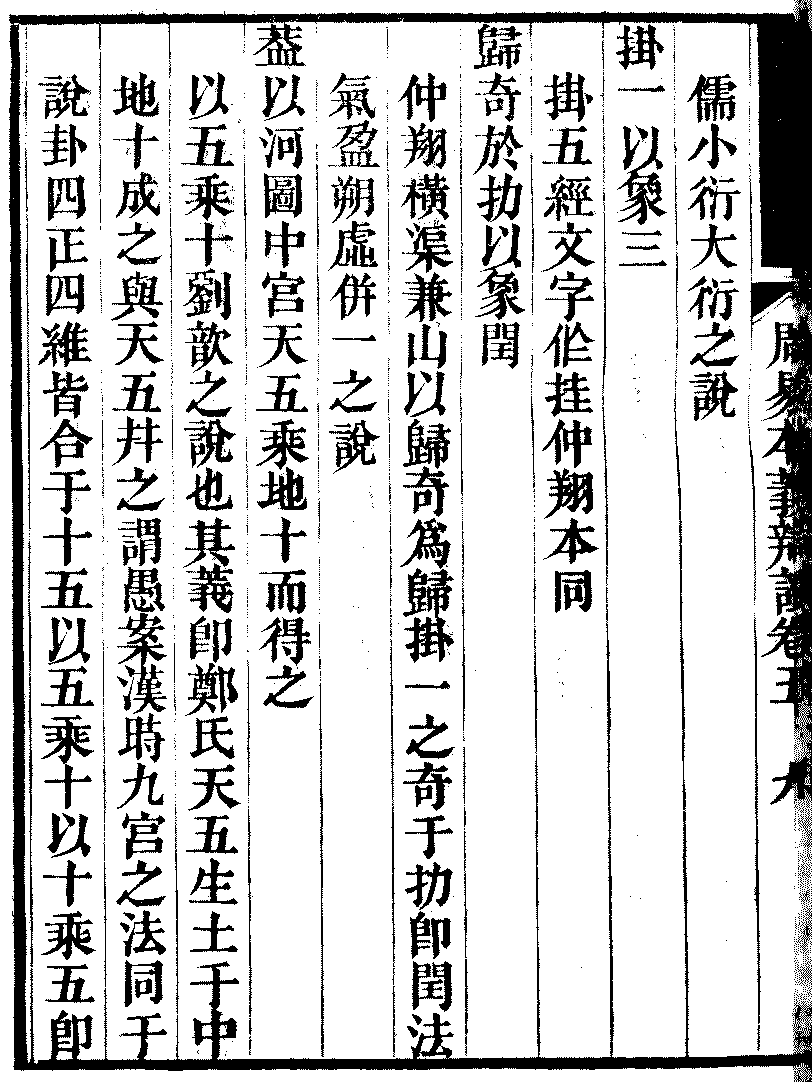 周易本義辯證卷五　九
儒小衍大衍之說
掛一以象三
掛五經文字作挂仲翔本同
歸奇於扐以象閏
仲翔橫渠兼山以歸奇爲歸掛一之奇于扐卽閏法
氣盈朔虛併一之說
葢以河圖中宮天五乘地十而得之
以五乘十劉歆之說也其義卽鄭氏天五生土于中
地十成之與天五幷之謂愚案漢時九宮之法同于
說卦四正四維皆合于十五以五乘十以十乘五卽